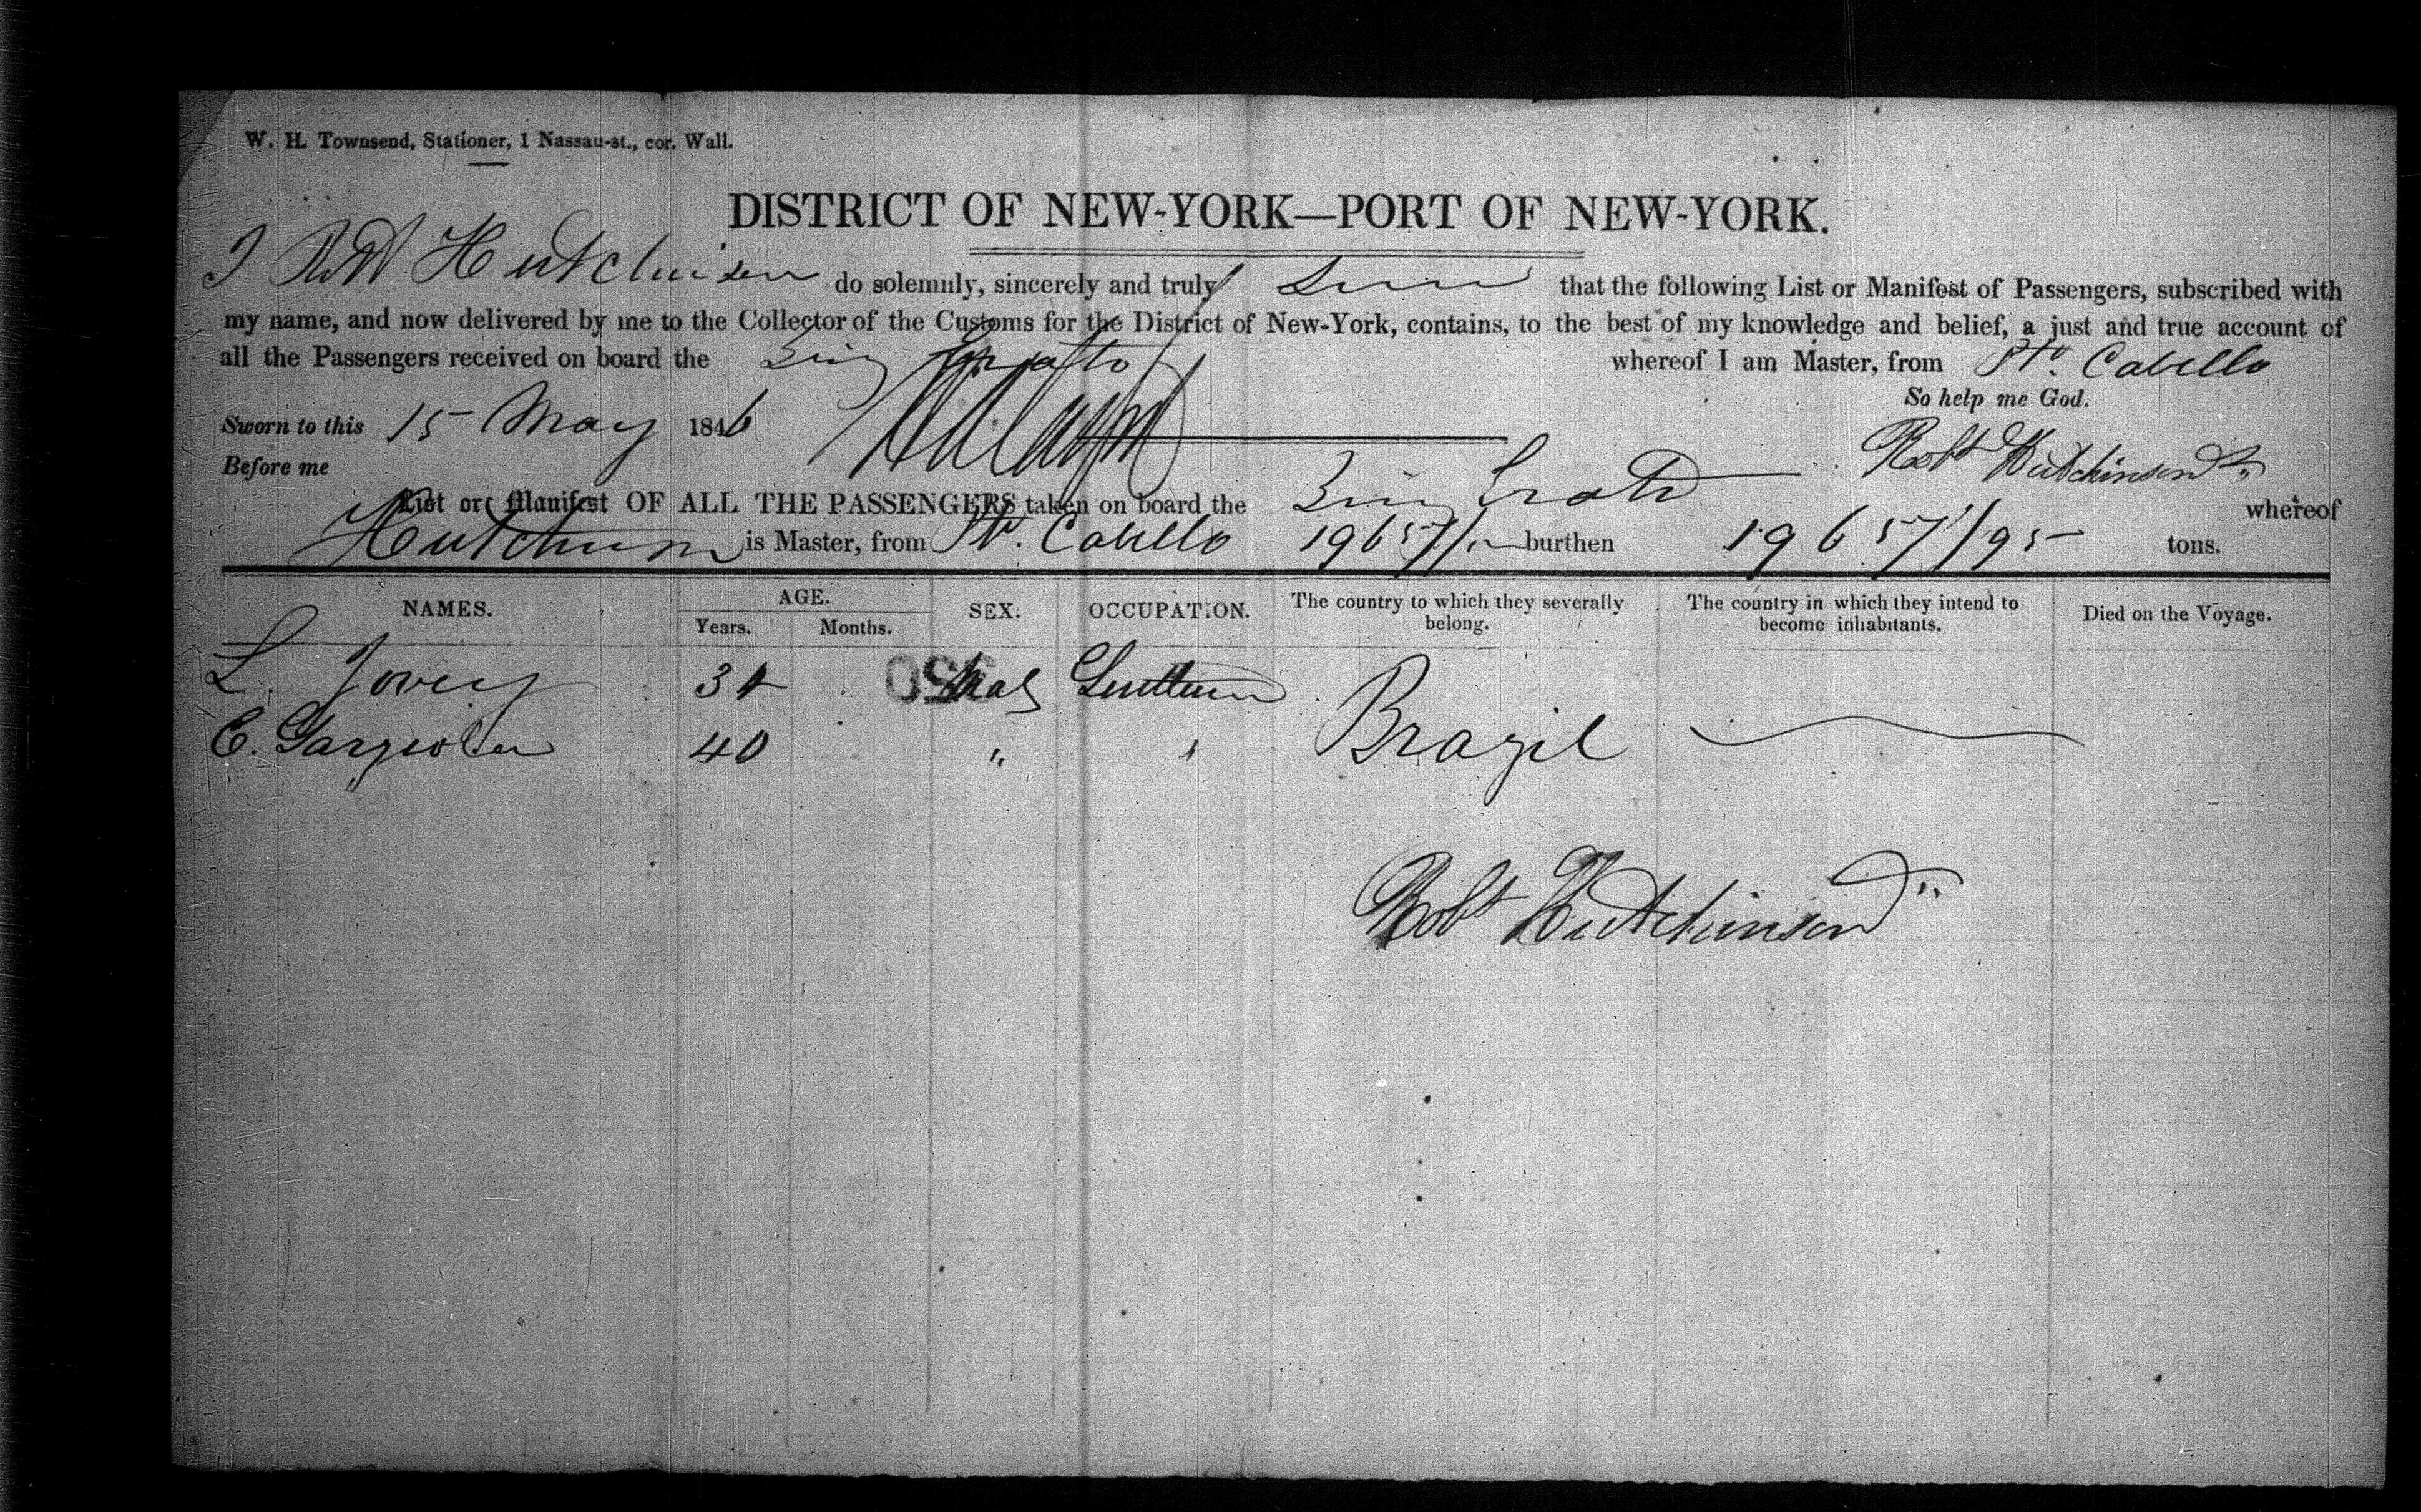 W. H. Townsend, Stationer, 1 Nassau-st., cor. Wall.
DISTRICT OF NEW-YORK—PORT OF NEW-YORK.
I Robt Hutchinson do solemnly, sincerely and truly that the following List or Manifest of Passengers, subscribed with
my name, and now delivered by me to the Collector of the Customs for the District of New-York, contains, to the best of my knowledge and belief, a just and true account of
all the Passengers received on board the whereof I am Master, from Pto. Cabello
So help me God.
Sworn to this 15 May 1846
Before me
Robt Hutchinson
List or Manifest OF ALL THE PASSENGERS taken on board the whereof
Hutchinson is Master, from Pto. Cabello burthen 196 57/95 tons.
NAMES. AGE. SEX. OCCUPATION. The country to which they severally belong. The country in which they intend to become inhabitants. Died on the Voyage.
Years. Months.
L. 350
E. 40 " " Brazil
Robt Hutchinson